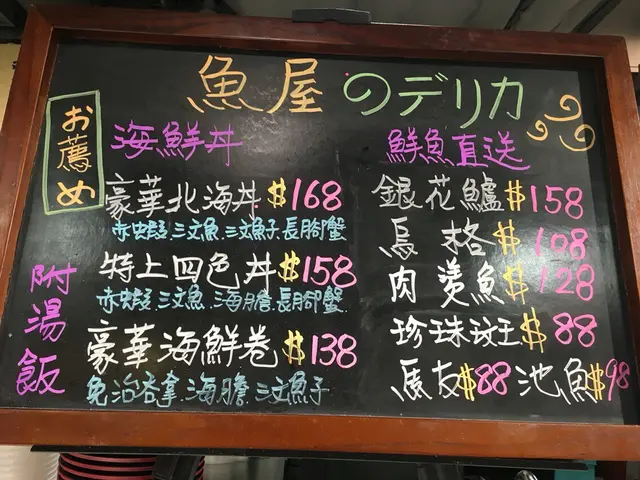 魚屋のデリカ
お薦め
海鮮丼
豪華北海丼 $168
赤蝦.三文魚.三文魚子.長腳蟹
特上四色丼 $158
赤蝦.三文魚.海膽.長腳蟹
豪華海鮮巻 $138
免治吞拿.海膽.三文魚子
附湯飯
鮮魚直送
銀花鱸 $158
烏格 $108
肉燙魚 $128
珍珠斑 $88
馬友 $88 池魚 $98